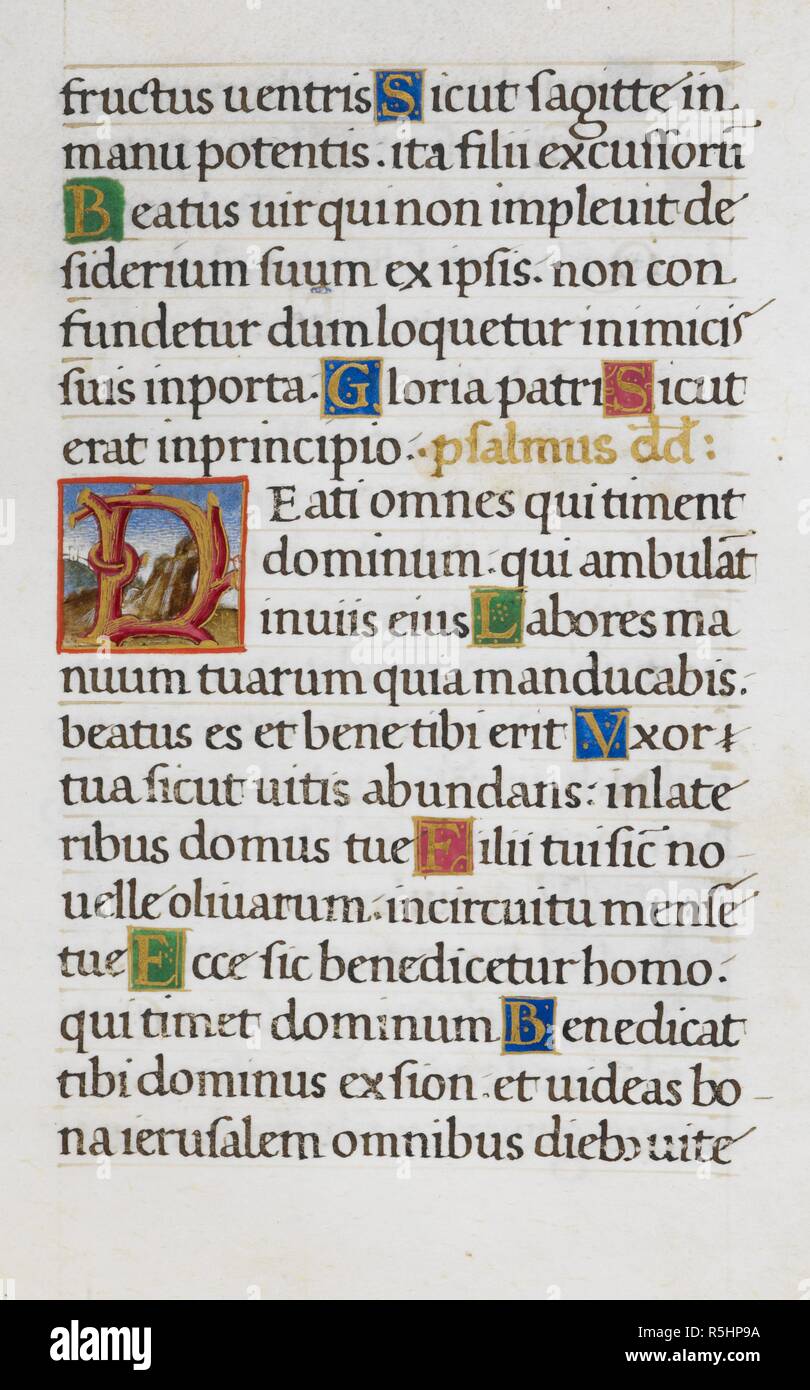 fructus uentris Sicut sagitte in
manu potentis. ita filii excussorū
Beatus uir qui non impleuit de
siderium suum ex ipsis. non con
fundetur dum loquetur inimicis
suis in porta. Gloria patri Sicut
erat in principio. psalmus dd:
DEati omnes qui timent
dominum. qui ambulāt
in uiis eius Labores ma
nuum tuarum quia manducabis.
beatus es et bene tibi erit Vxor
tua sicut uitis abundans: in late
ribus domus tue Filii tui sic̄ no
uelle oliuarum. in circuitu mense
tue Ecce sic benedicetur homo.
qui timet dominum Benedicat
tibi dominus ex sion. et uideas bo
na ierusalem omnibus dieb uite
alamy
Image ID: R5HP9A
www.alamy.com